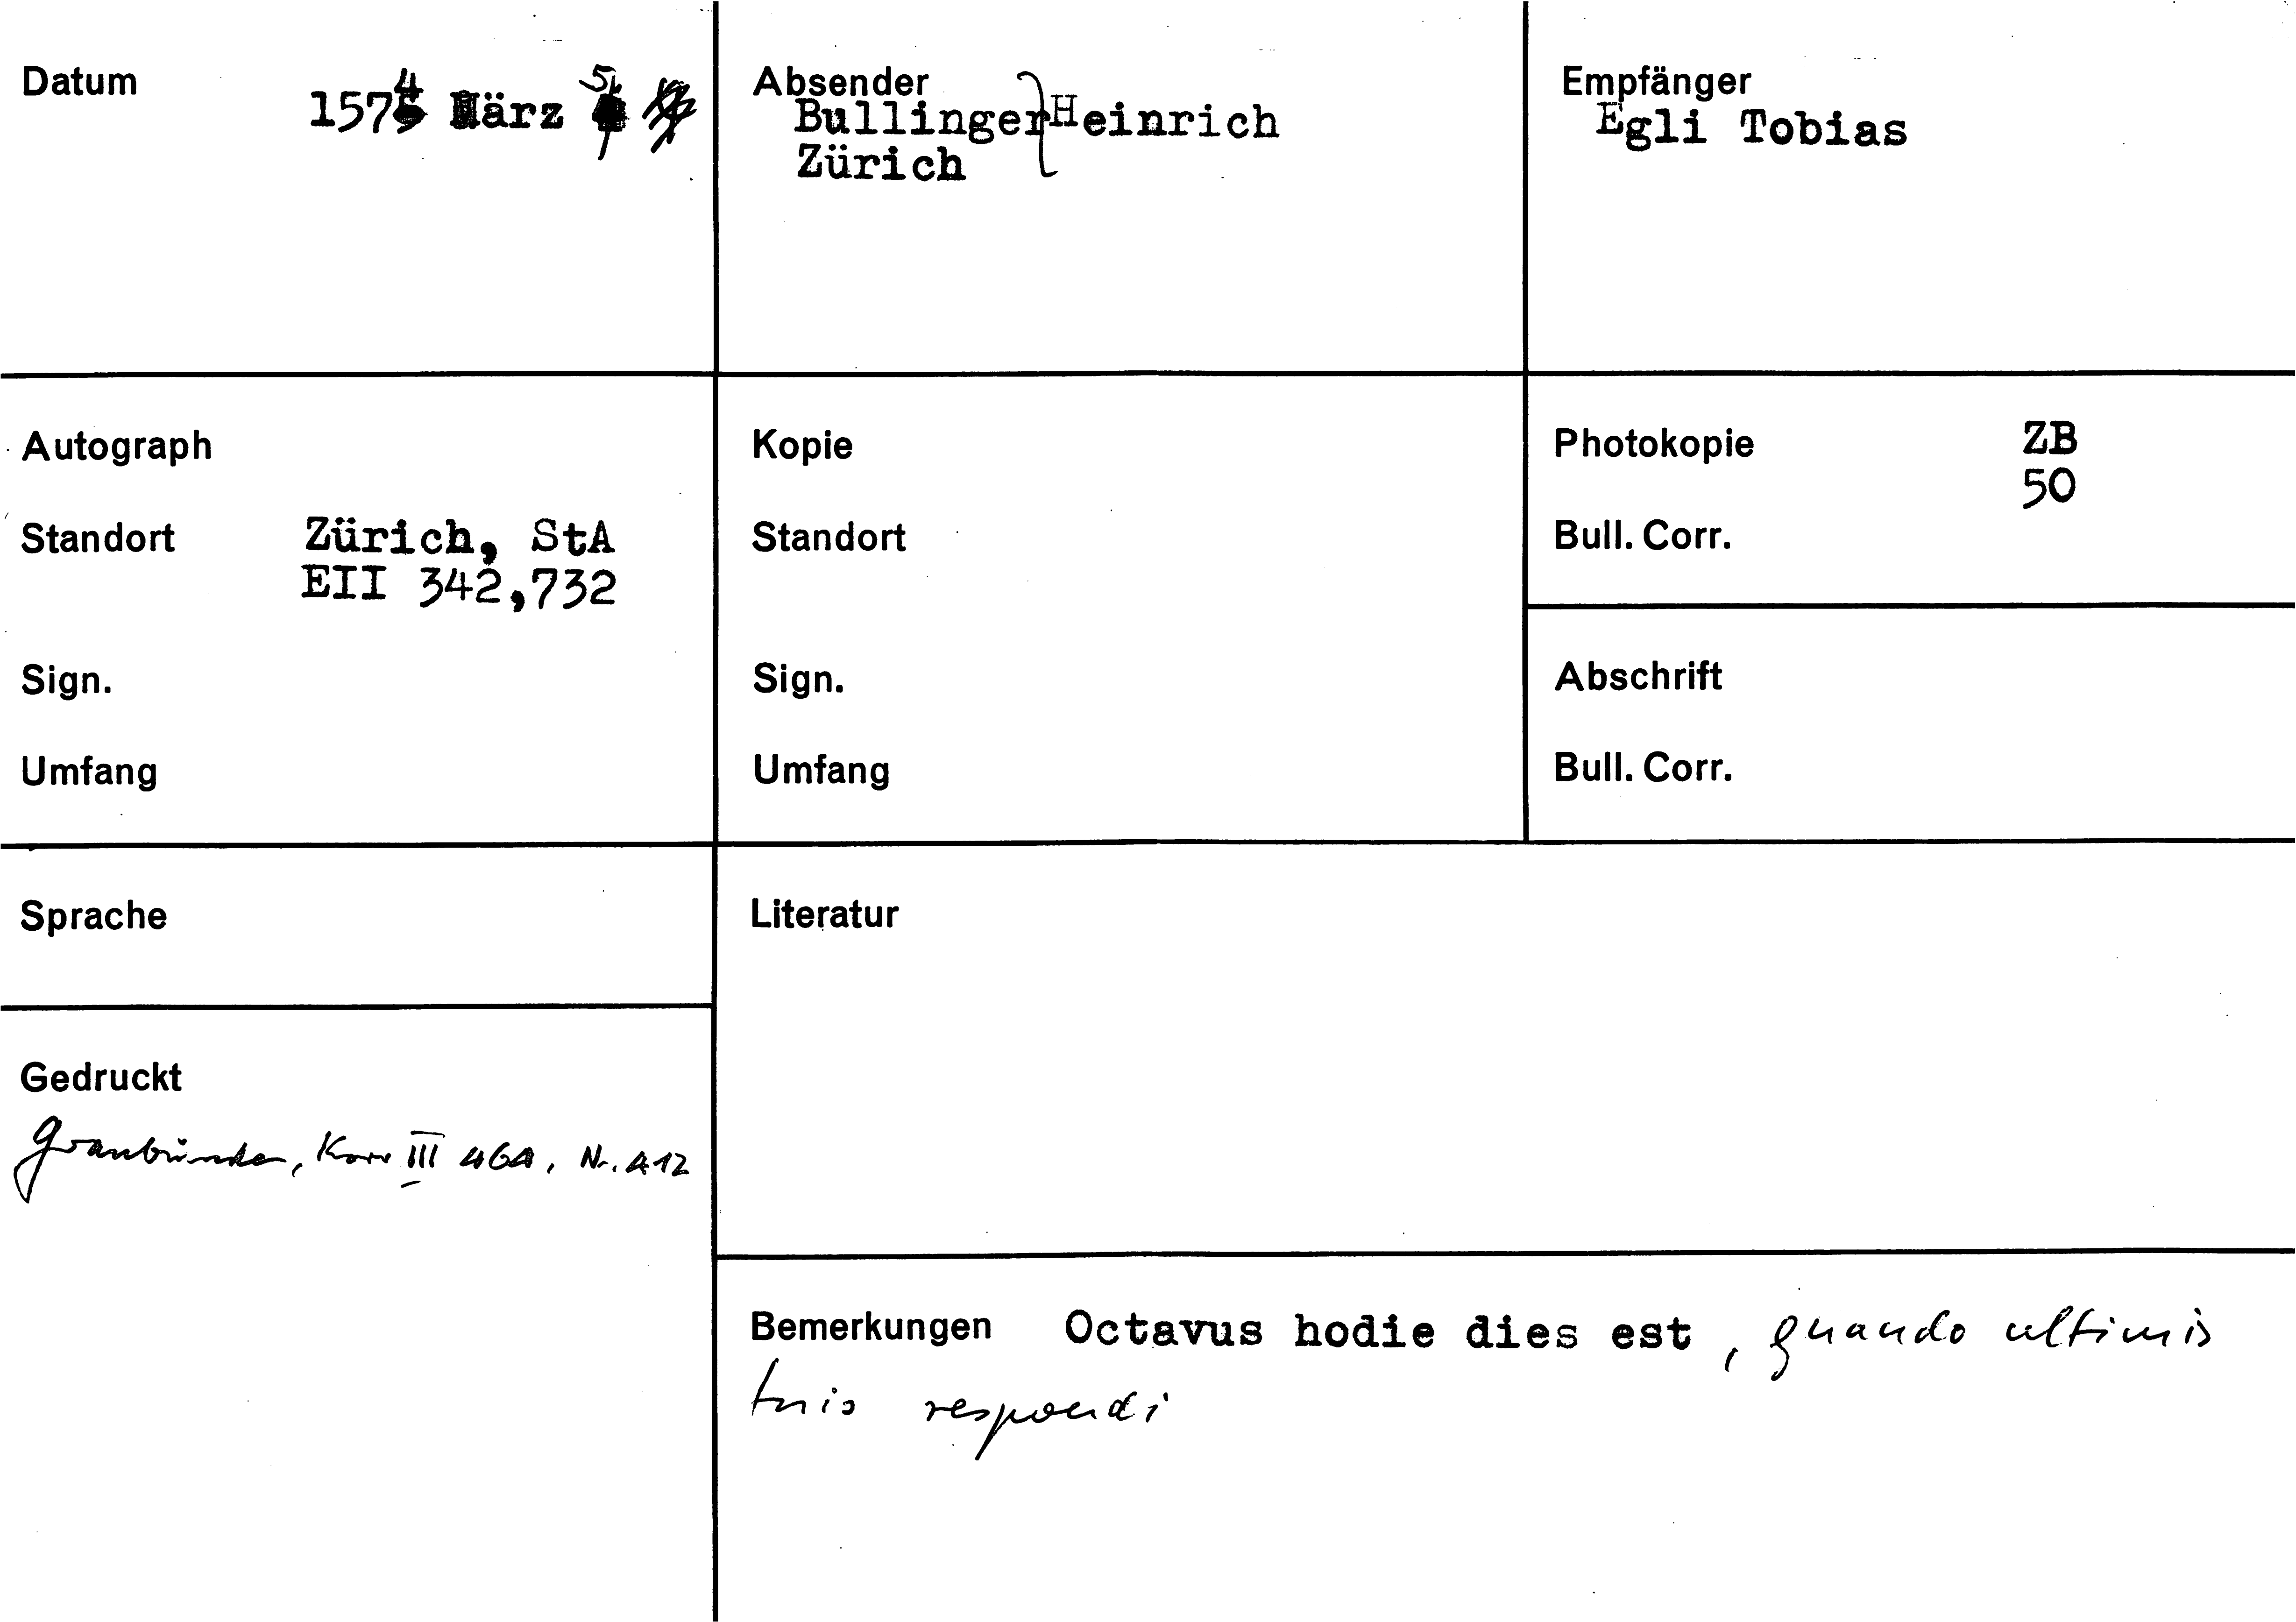 Datum
1574 März 5.
Absender
Bullinger Heinrich
Zürich
Empfänger
Egli Tobias
Autograph
Standort
Zürich, StA
EII 342,732
Sign.
Umfang
Kopie
Standort
Sign.
Umfang
Photokopie
ZB
50
Bull. Corr.
Abschrift
Bull. Corr.
Sprache
Gedruckt
Graubünden, Korr III 464, Nr. 412
Literatur
Bemerkungen Octavus hodie dies est, quando ultimis
tuis respondi